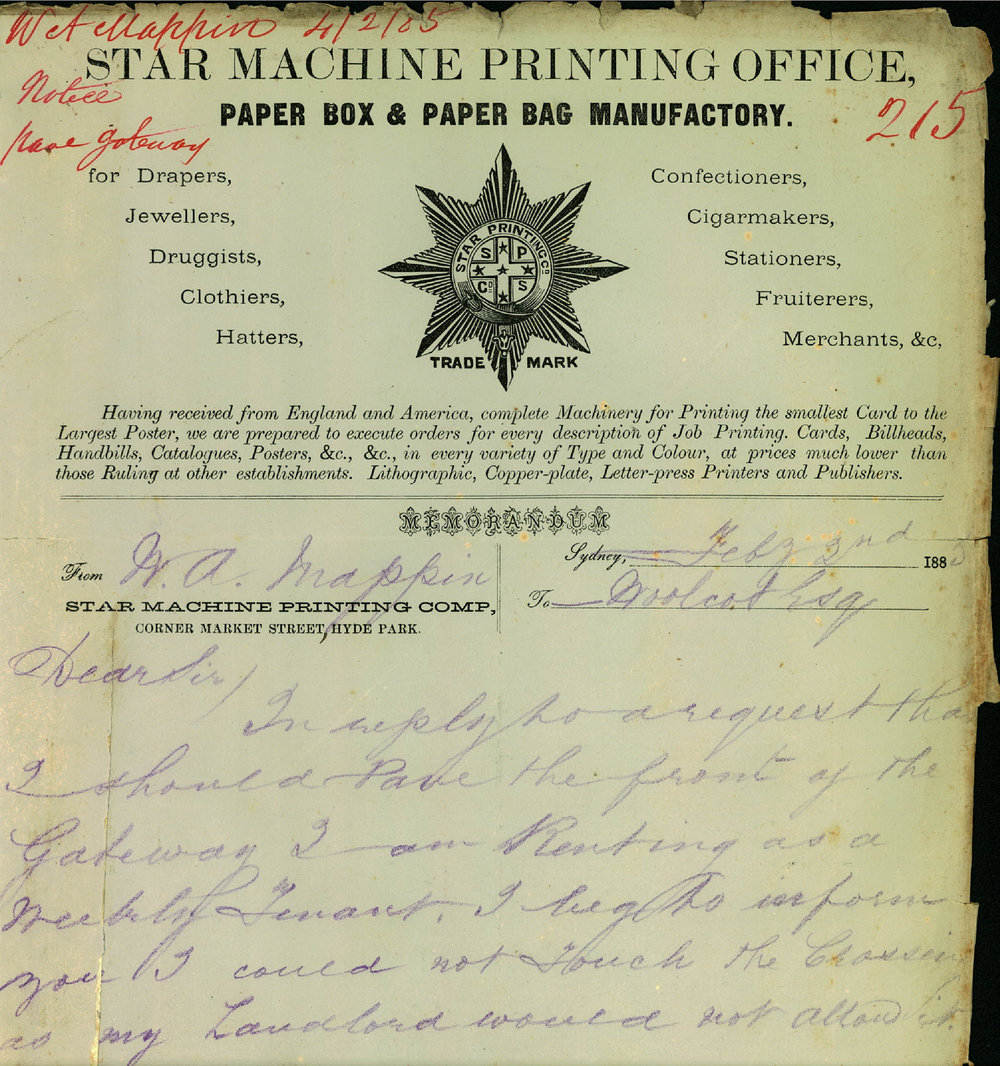 W A Mappin 4/2/85
STAR MACHINE PRINTING OFFICE,
Notice
PAPER BOX & PAPER BAG MANUFACTORY.
215
pave gateway
for Drapers,
Jewellers,
Druggists,
Clothiers,
Hatters,
Confectioners,
Cigarmakers,
Stationers,
Fruiterers,
Merchants, &c,
STAR PRINTING Co
S P
Co S
TRADE MARK
Having received from England and America, complete Machinery for Printing the smallest Card to the
Largest Poster, we are prepared to execute orders for every description of Job Printing. Cards, Billheads,
Handbills, Catalogues, Posters, &c., &c., in every variety of Type and Colour, at prices much lower than
those Ruling at other establishments. Lithographic, Copper-plate, Letter-press Printers and Publishers.
MEMORANDUM
Sydney, Feby 2nd 188
From W. A. Mappin
To Woolcot Esq
STAR MACHINE PRINTING COMP,
CORNER MARKET STREET, HYDE PARK.
Dear Sir/
In reply to a request tha
I should Pave the front of the
Gateway I am Renting as a
Weekly Tenant. I beg to inform
you I could not Touch the Crossin
as my Landlord would not allow it.